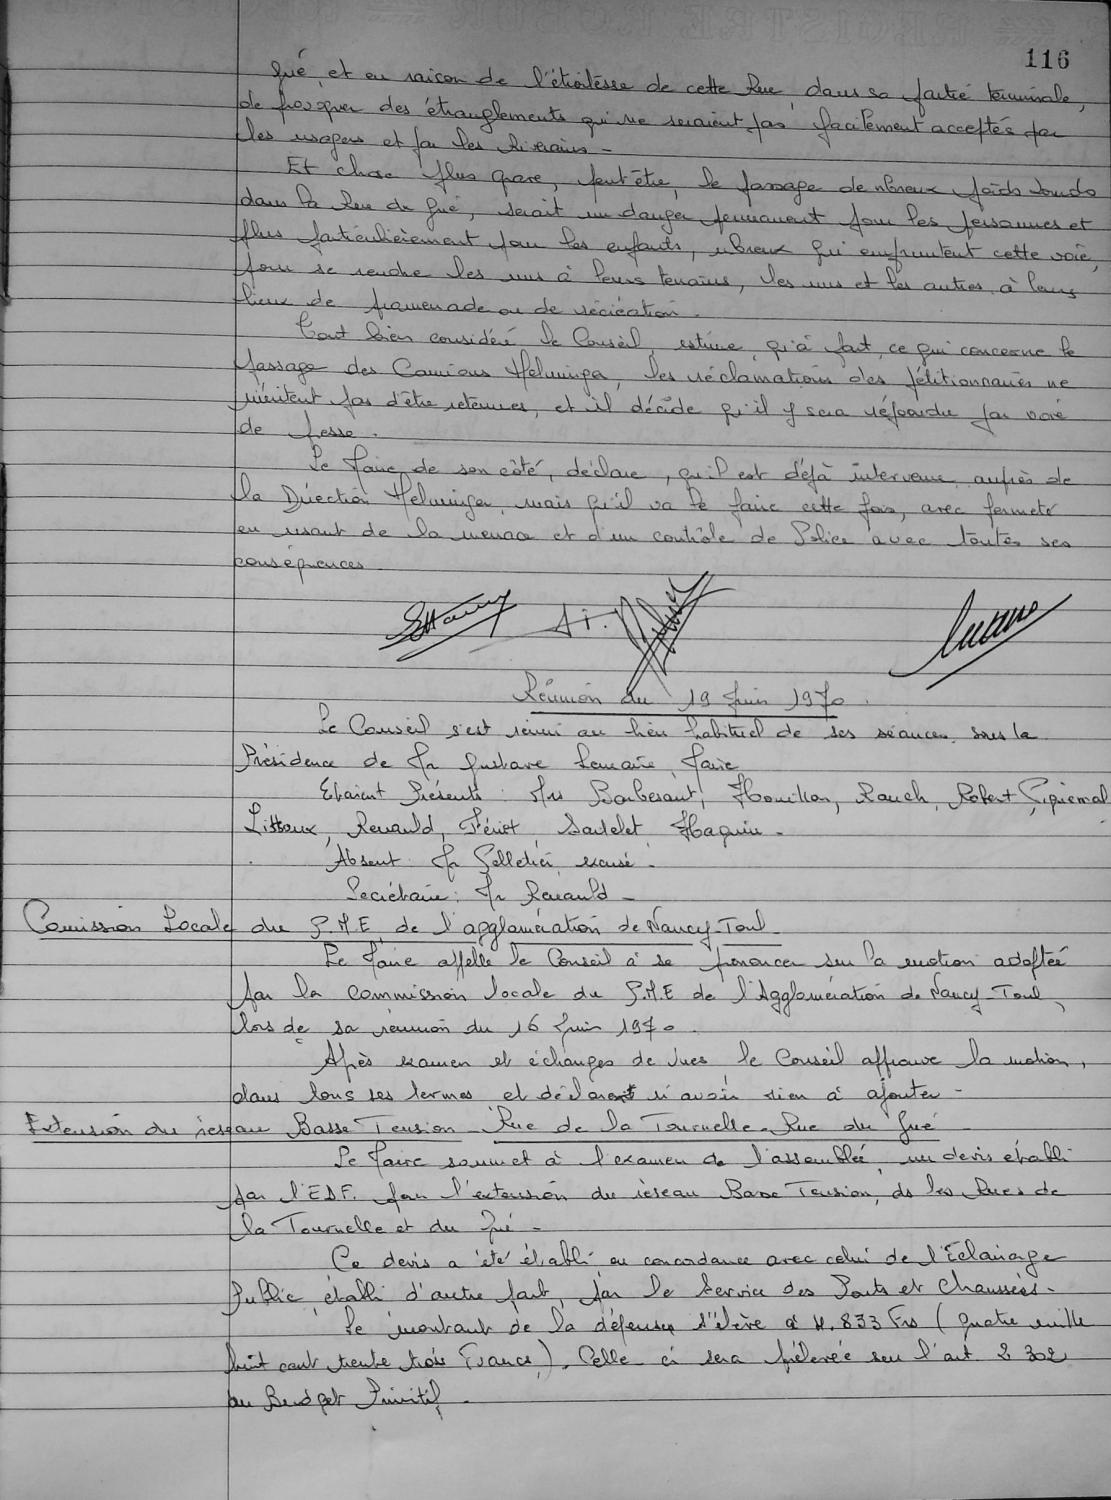 116
Gué, et en raison de l'étroitesse de cette Rue, dans sa partie terminale,
de provoquer des étranglements qui ne seraient pas facilement acceptés par
les usagers et par les Riverains -
Et chose plus grave, peut être, le passage de nbreux poids lourds
dans la Rue du Gué, serait un danger permanent pour les personnes et
plus particulièrement pour les enfants, nbreux qui empruntent cette voie,
pour se rendre les uns à leurs terrains, les uns et les autres, à leurs
lieux de promenade ou de récréation.
Tout bien considéré le Conseil, estime, qu'à part, ce qui concerne le
passage des Camions Helminger, les réclamations des pétitionnaires ne
méritent pas d'être retenues, et il décide qu'il y sera répondu par voie
de presse.
Le Maire de son côté, déclare, qu'il est déjà intervenu, auprès de
la Direction Helminger, mais qu'il va le faire cette fois, avec fermeté
en usant de la menace et d'un contrôle de Police avec toutes ses
conséquences.
Réunion du 19 Juin 1970.
Le Conseil s'est réuni au lieu habituel de ses séances, sous la
Présidence de Mr Gustave Lemaire, Maire
Etaient Présents : Mrs Barbesant, Houillon, Rauch, Robert,
Renauld, Fériet, Sautelet, Haquin -
Absent : Mr Pelletier, excusé.
Secrétaire : Mr Renauld -
Comission Locale du P.M.E. de l'agglomération de Nancy-Toul
Le Maire appelle le Conseil à se prononcer sur la motion adoptée
par la Commission locale du P.M.E de l'Agglomération de Nancy-Toul,
lors de sa réunion du 16 Juin 1970.
Après examen et échanges de vues, le Conseil approuve la motion,
dans tous ses termes et déclarent n'avoir rien à ajouter -
Extension du réseau Basse Tension Rue de la Tournelle - Rue du Gué -
Le Maire soumet à l'examen de l'assemblée, un devis établi
par l'E.D.F. pour l'extension du réseau Basse Tension, ds les Rues de
la Tournelle et du Gué -
Ce devis a été établi en concordance avec celui de l'Eclairage
Public, établi d'autre part, par le Service des Ponts et Chaussées.
Le montant de la dépense s'élève à 4.833 Frs (quatre mille
huit cent trente trois Francs). Celle ci sera prélevée sur l'art. 2 302
au Budget Primitif.